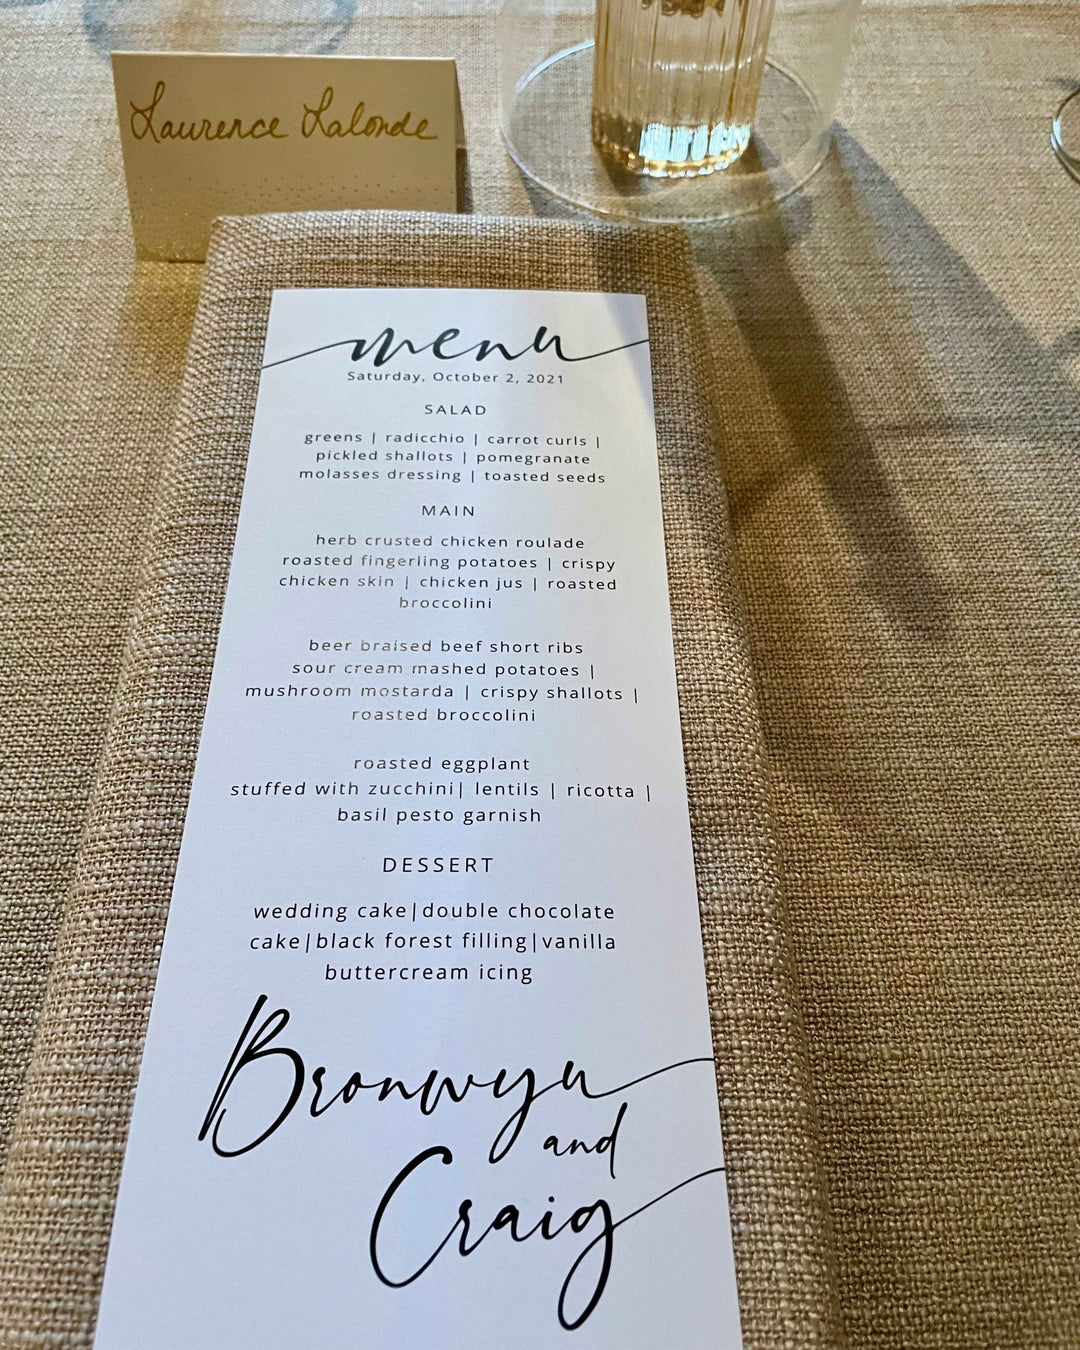 Laurence Lalonde
menu
Saturday, October 2, 2021
SALAD
greens | radicchio | carrot curls |
pickled shallots | pomegranate
molasses dressing | toasted seeds
MAIN
herb crusted chicken roulade
roasted fingerling potatoes | crispy
chicken skin | chicken jus | roasted
broccolini
beer braised beef short ribs
sour cream mashed potatoes |
mushroom mostarda | crispy shallots |
roasted broccolini
roasted eggplant
stuffed with zucchini| lentils | ricotta |
basil pesto garnish
DESSERT
wedding cake|double chocolate
cake|black forest filling|vanilla
buttercream icing
Bronwyn
and
Craig